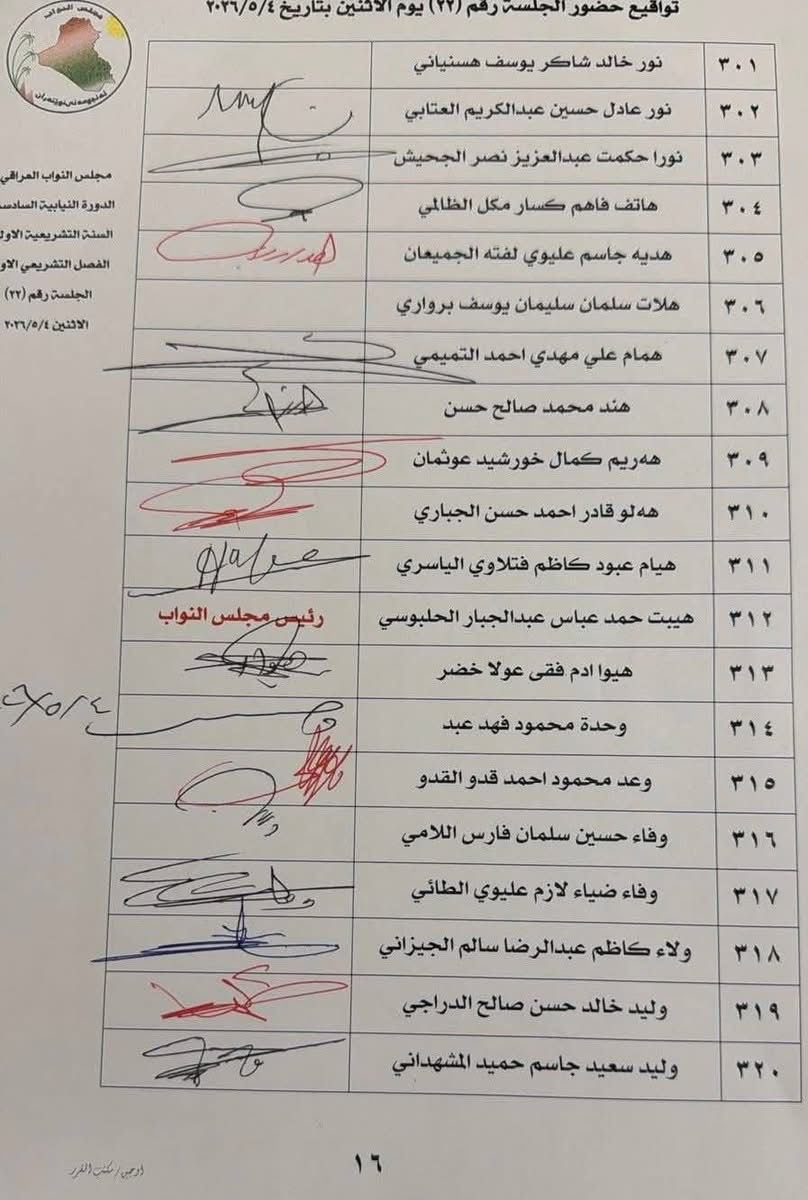 تواقيع حضور الجلسة رقم (٢٢) يوم الاثنين بتاريخ ٢٠٢٦/٥/٤
مجلس النواب
ئەنجومەنی نوێنەران
مجلس النواب العراقي
الدورة النيابية السادسة
السنة التشريعية الاولى
الفصل التشريعي الاول
الجلسة رقم (٢٢)
الاثنين ٢٠٢٦/٥/٤
٣٠١ نور خالد شاكر يوسف هسنياني
٣٠٢ نور عادل حسين عبدالكريم العتابي
٣٠٣ نورا حكمت عبدالعزيز نصر الجحيش
٣٠٤ هاتف فاهم كسار مكل الظالمي
٣٠٥ هديه جاسم عليوي لفته الجميعان
٣٠٦ هلات سلمان سليمان يوسف برواري
٣٠٧ همام علي مهدي احمد التميمي
٣٠٨ هند محمد صالح حسن
٣٠٩ هەريم كمال خورشيد عوثمان
٣١٠ هەلو قادر احمد حسن الجباري
٣١١ هيام عبود كاظم فتلاوي الياسري
٣١٢ هيبت حمد عباس عبدالجبار الحلبوسي رئيس مجلس النواب
٣١٣ هيوا ادم فقى عولا خضر
٣١٤ وحدة محمود فهد عبد
٣١٥ وعد محمود احمد قدو القدو
٣١٦ وفاء حسين سلمان فارس اللامي
٣١٧ وفاء ضياء لازم عليوي الطائي
٣١٨ ولاء كاظم عبدالرضا سالم الجيزاني
٣١٩ وليد خالد حسن صالح الدراجي
٣٢٠ وليد سعيد جاسم حميد المشهداني
١٦